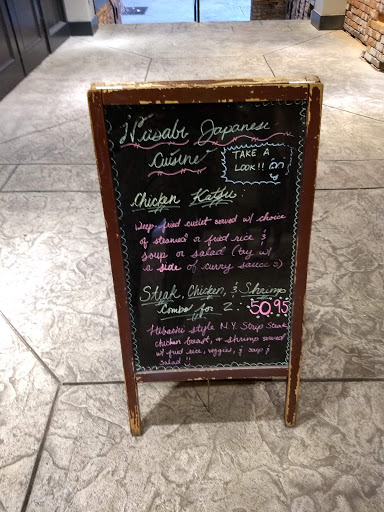 Wasabi Japanese
Cuisine
TAKE A
LOOK!!
Chicken Katsu:
Deep-fried cutlet served w/ choice
of steamed or fried rice &
soup or salad (try w/
a side of curry sauce
Steak, Chicken, & Shrimp
Combo for 2: 50.95
Hibachi style N.Y. Strip Steak
chicken breast, & shrimp served
w/ fried rice, veggies, & soup &
salad!!